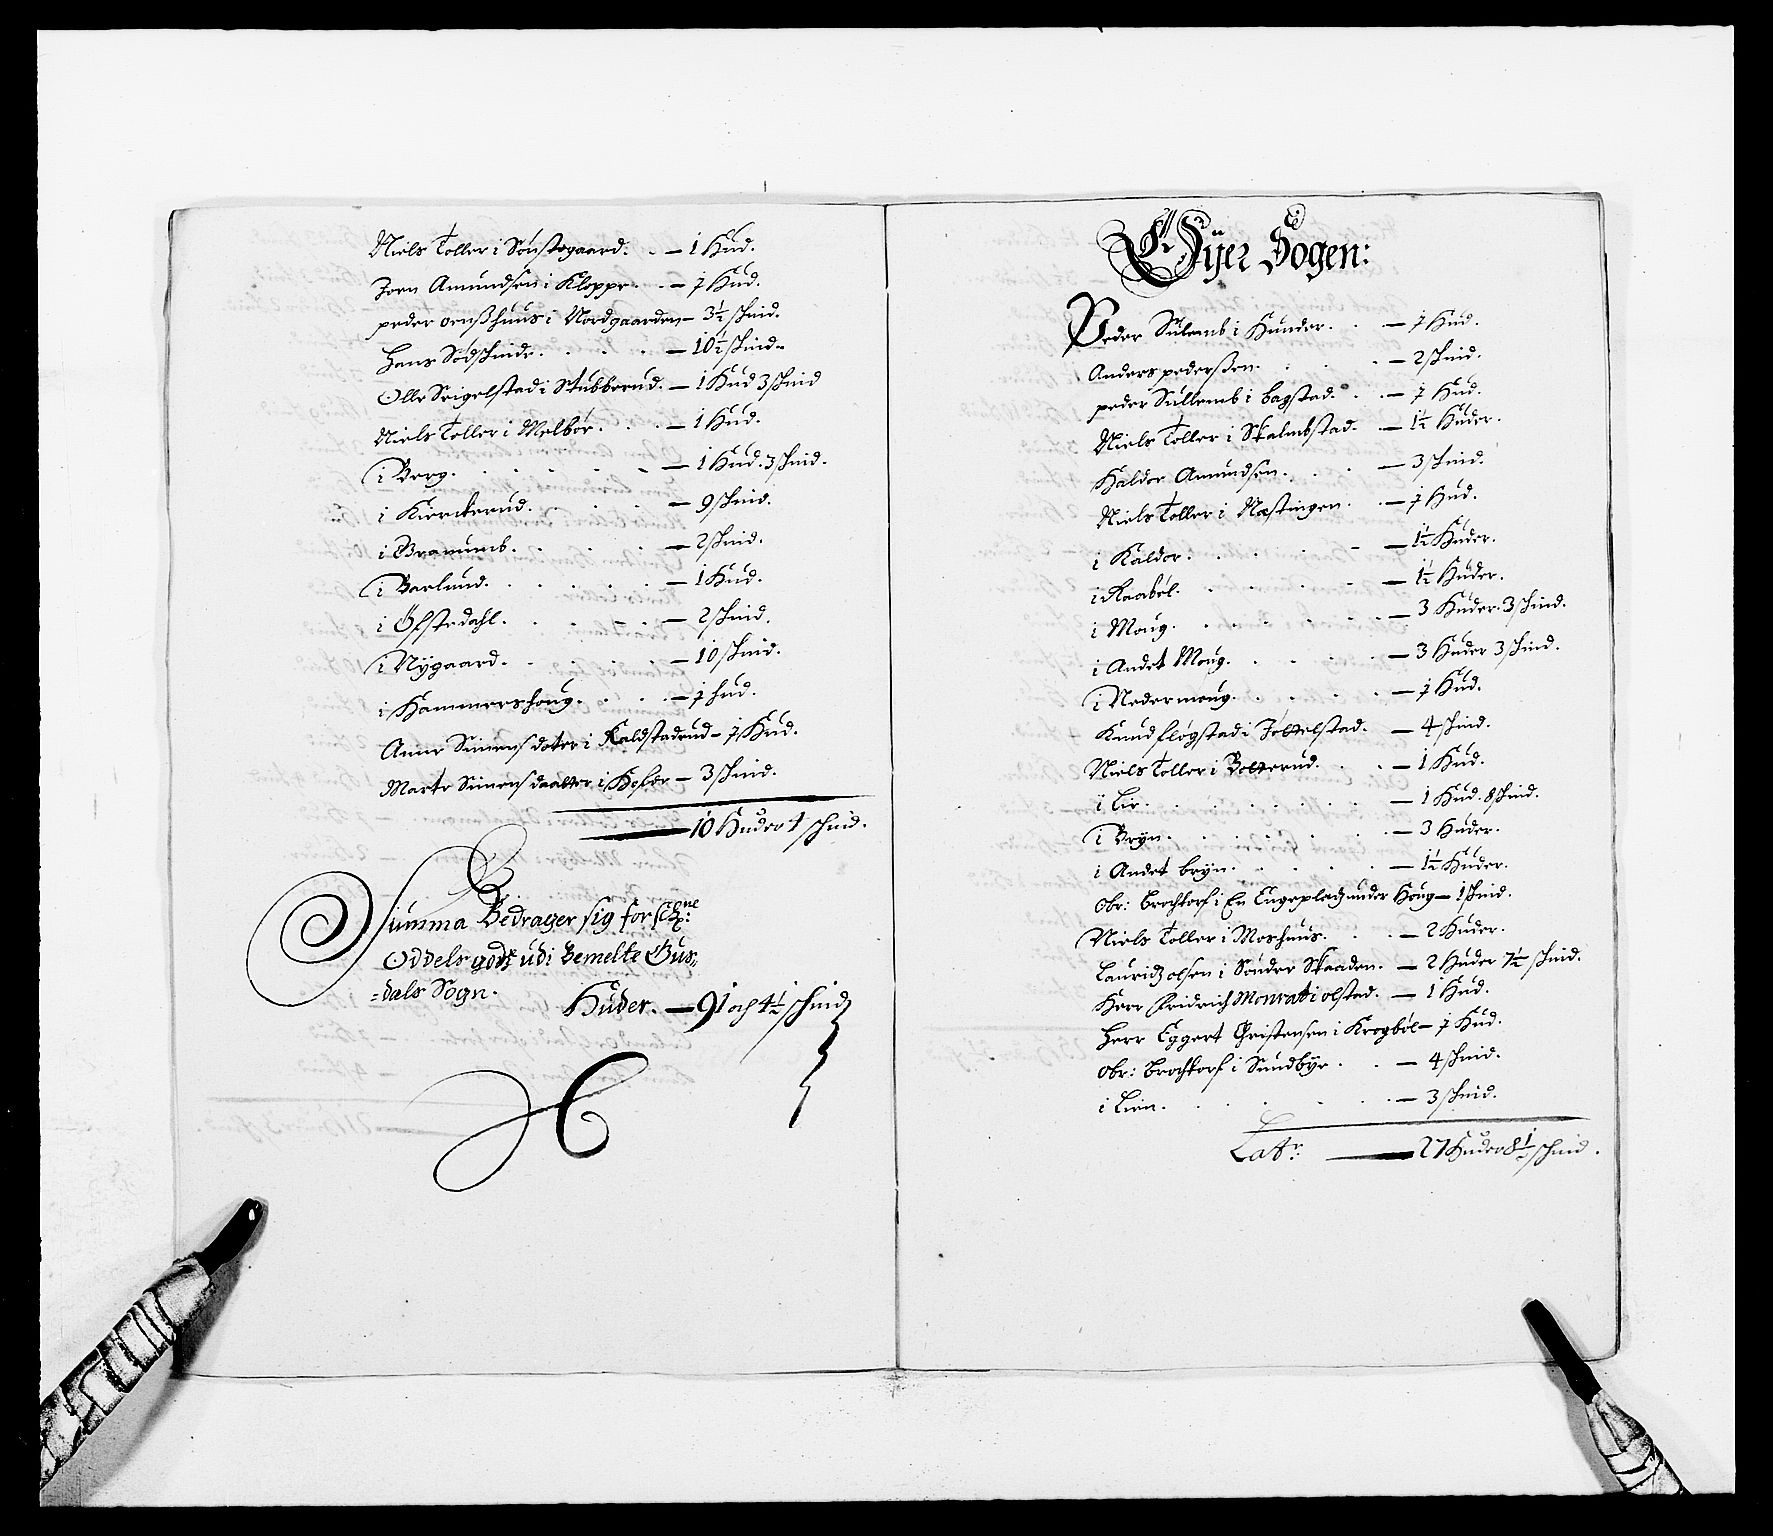 Niels Toller i Sønstegaard. . — 1 Hud.
Joen Amundsen i Kloppe. . — 1 Hud.
peder oenshuus i Nordgaarden — 3½ schind.
Hans Sødschinde. . . . — 10½ schind.
Olle Seigelstad i Stubberud. — 1 Hud 3 schind
Niels Toller i Melbør. . . — 1 Hud.
i Berg. . . . . — 1 Hud. 3 schind.
i Kierckerud. . . . — 9 schind.
i Bramumb. . . . — 2 schind.
i Barlund. . . . . — 1 Hud.
i Ølstedahl. . . . — 2 schind.
i Nÿgaard. . . . . — 10 schind.
i Hammershoug. . . . — 1 hud.
Anne Simensdoter i Kaldstadrud — 1 Hud.
Marte Simensdaatter i — 3 schind.
— 10 Huder 4 schind.
Summa Bedrager sig for
Oddels godz udi bemelte Gus-
=dals Sogn.
Huder. — 91 och 4½ schind
Øÿer Sogen:
Peder Sulemb i Hunder. . . — 1 Hud.
Anders pedersen. . . . — 2 schind.
peder Sullemb i bagstad. . . — 1 Hud.
Niels Toller i Skalmbstad. — 1½ Huder.
Haldor Amundsen. . . — 3 schind.
Niels Toller i Næstingen. . — 1 Hud.
i Kaldor. . . . — 1½ Huder.
i Raabøl. . . . . — 1½ Huder.
i Moug. . . . . — 3 Huder. 3 schind.
i Andet Moug. . . . . — 3 Huder 3 schind.
i Nedermoug. . . . . — 1 Hud.
Knud fløgstad i Jøttelstad. — 4 schind.
Niels Toller i Botterud. . . — 1 Hud.
i Lie. . . . . . — 1 Hud. 8 schind.
i Brÿn. . . . . . — 3 Huder.
i Andet brÿn. . . . . — 1½ Huder.
obr: Brochtorf i En Eugepladz under Houg — 1 schind.
Niels Toller i Moshuus. . . — 2 Huder.
Lauridz olsen i Sønder Skaaden. — 2 Huder 7½ schind.
Herr Fridrich Monrat i olstad. — 1 Hud.
Herr Eggert Christensen i Krogbøl — 1 Hud.
obr: Brochtorf i Sundbÿe. . . — 4 schind.
i Lien. . . . . — 3 schind.
Latr: — 27 Huder 8½ schind.